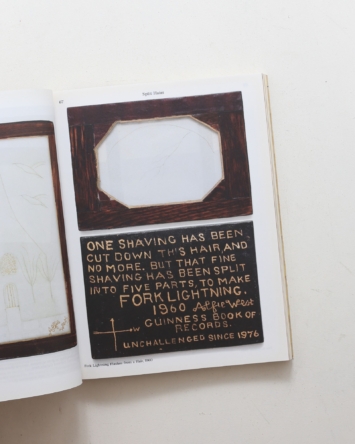 67
ONE SHAVING HAS BEEN
CUT DOWN THS HAIR AND
NO MORE, BUT THAT FINE
SHAVING HAS BEEN SPLIT
INTO FIVE PARTS, TO MAKE
FORK LIGHTNING.
1960 Alfie West
GUINNESS BOOK OF
RECORDS.
UNCHALLENGED SINCE 1976
Fork Lightning